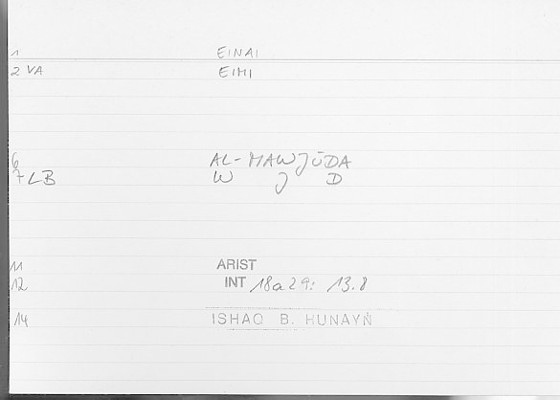 1 EINAI
2 VA EIMI
6 AL-MAWJŪDA
7 LB W J D
11 ARIST
12 INT 18a29: 13.8
14 ISHAQ B. HUNAYN